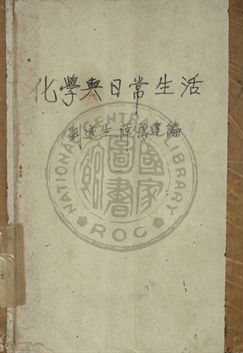 化學與日常生活
劉遂生 編
NATIONAL CENTRAL LIBRARY
ROC
國家圖書館